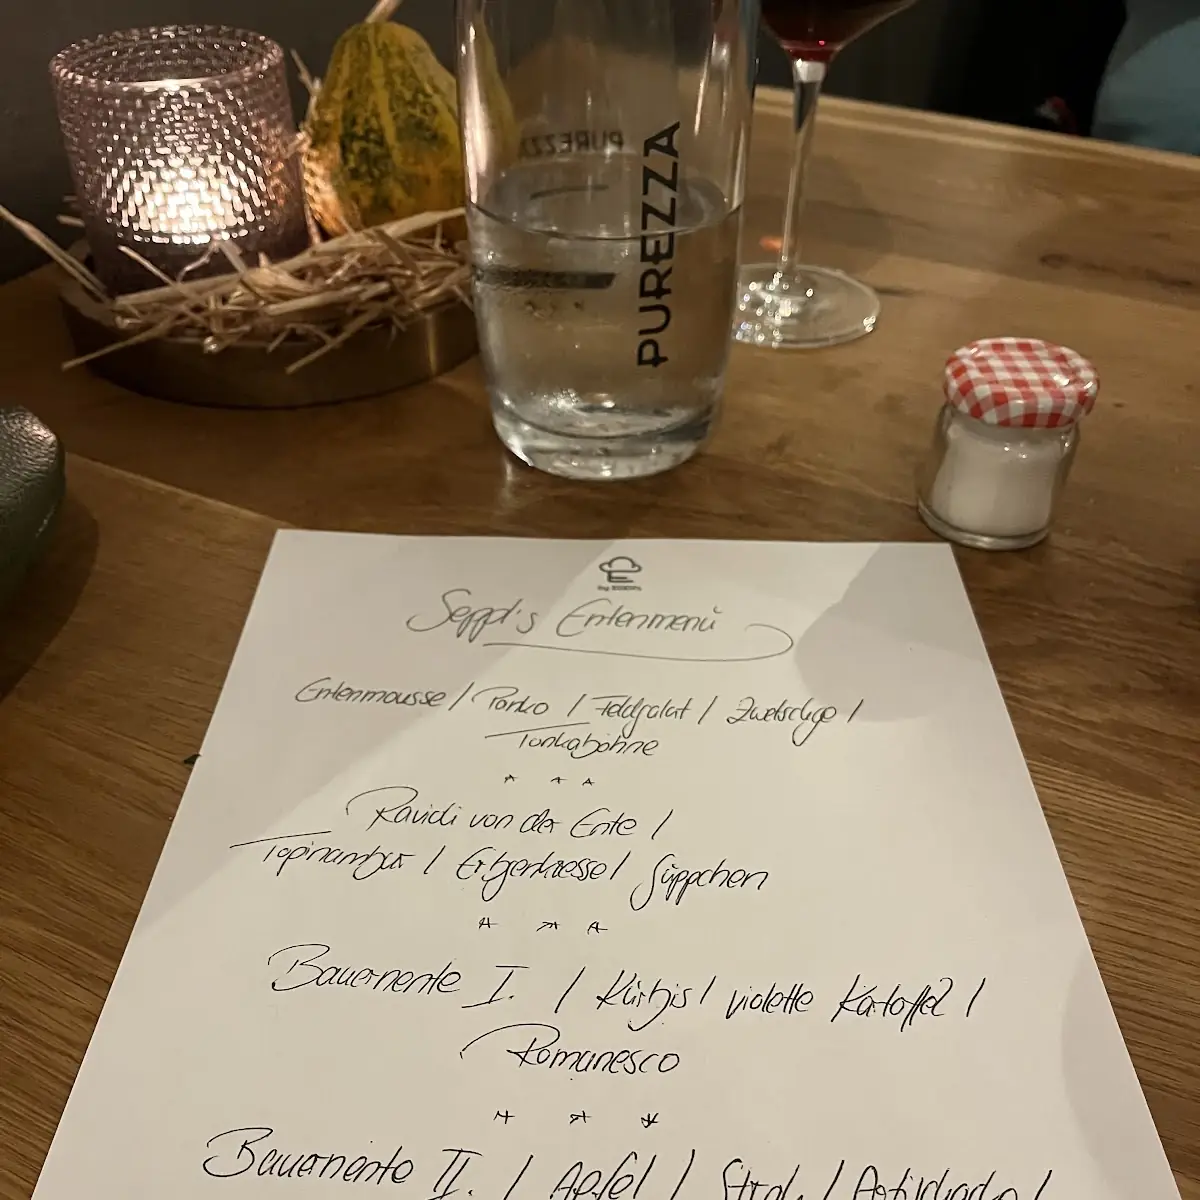 PUREZZA
Seppl's Entenmenü
Entenmousse / Panko / Feldsalat / Zwetschge /
Tonkabohne
* * *
Ravioli von der Ente /
Topinambur / Erbsenkresse / Süppchen
* * *
Bauernente I. / Kürbis / violette Kartoffel /
Romanesco
* * *
Bauernente II. / Apfel / / Artischocke /